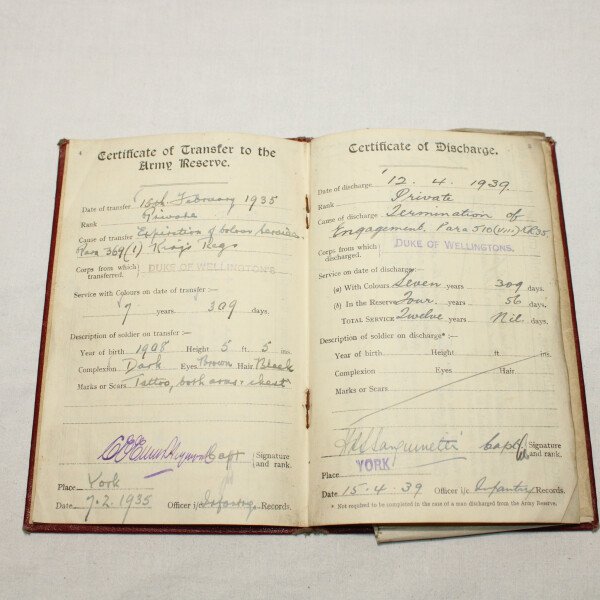 4
Certificate of Transfer to the
Army Reserve.
Date of transfer 16th February 1935
Rank Private
Cause of transfer Expiration of Colour Service
Para 369(1) King's Regs
Corps from which transferred. DUKE OF WELLINGTON'S
Service with Colours on date of transfer :—
7 years 309 days.
Description of soldier on transfer :—
Year of birth 1908 Height 5 ft. 5 ins.
Complexion Dark Eyes Brown Hair Black
Marks or Scars Tattoo, both arms + chest
Capt (Signature and rank.
Place York
Date 7.2.1935 Officer i/c Infantry Records.
5
Certificate of Discharge.
Date of discharge 12.4.1939
Rank Private
Cause of discharge Termination of
Engagement. Para 510 KR35
Corps from which discharged. DUKE OF WELLINGTONS.
Service on date of discharge:—
(a) With Colours Seven years 309 days.
(b) In the Reserve Four years 56 days.
TOTAL SERVICE Twelve years Nil. days.
Description of soldier on discharge* :—
Year of birth Height ft. ins.
Complexion Eyes Hair.
Marks or Scars.
Sanguinetti Capt. (Signature and rank.
Place YORK
Date 15.4.39 Officer i/c Infantry Records.
* Not required to be completed in the case of a man discharged from the Army Reserve.